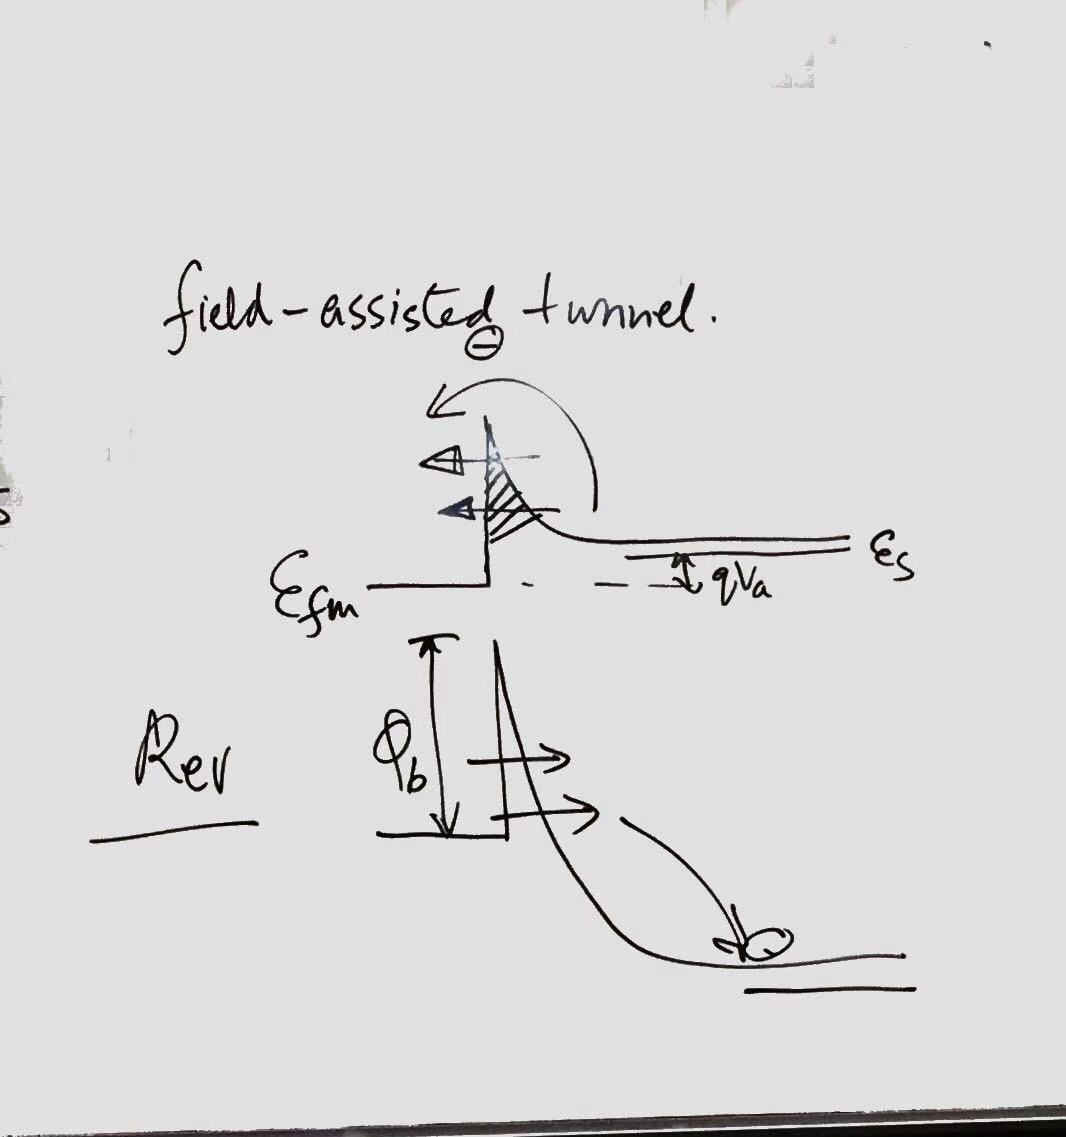 field-assisted tunnel.
⊖
Ɛfm
qVa
Ɛs
Rev
Φb